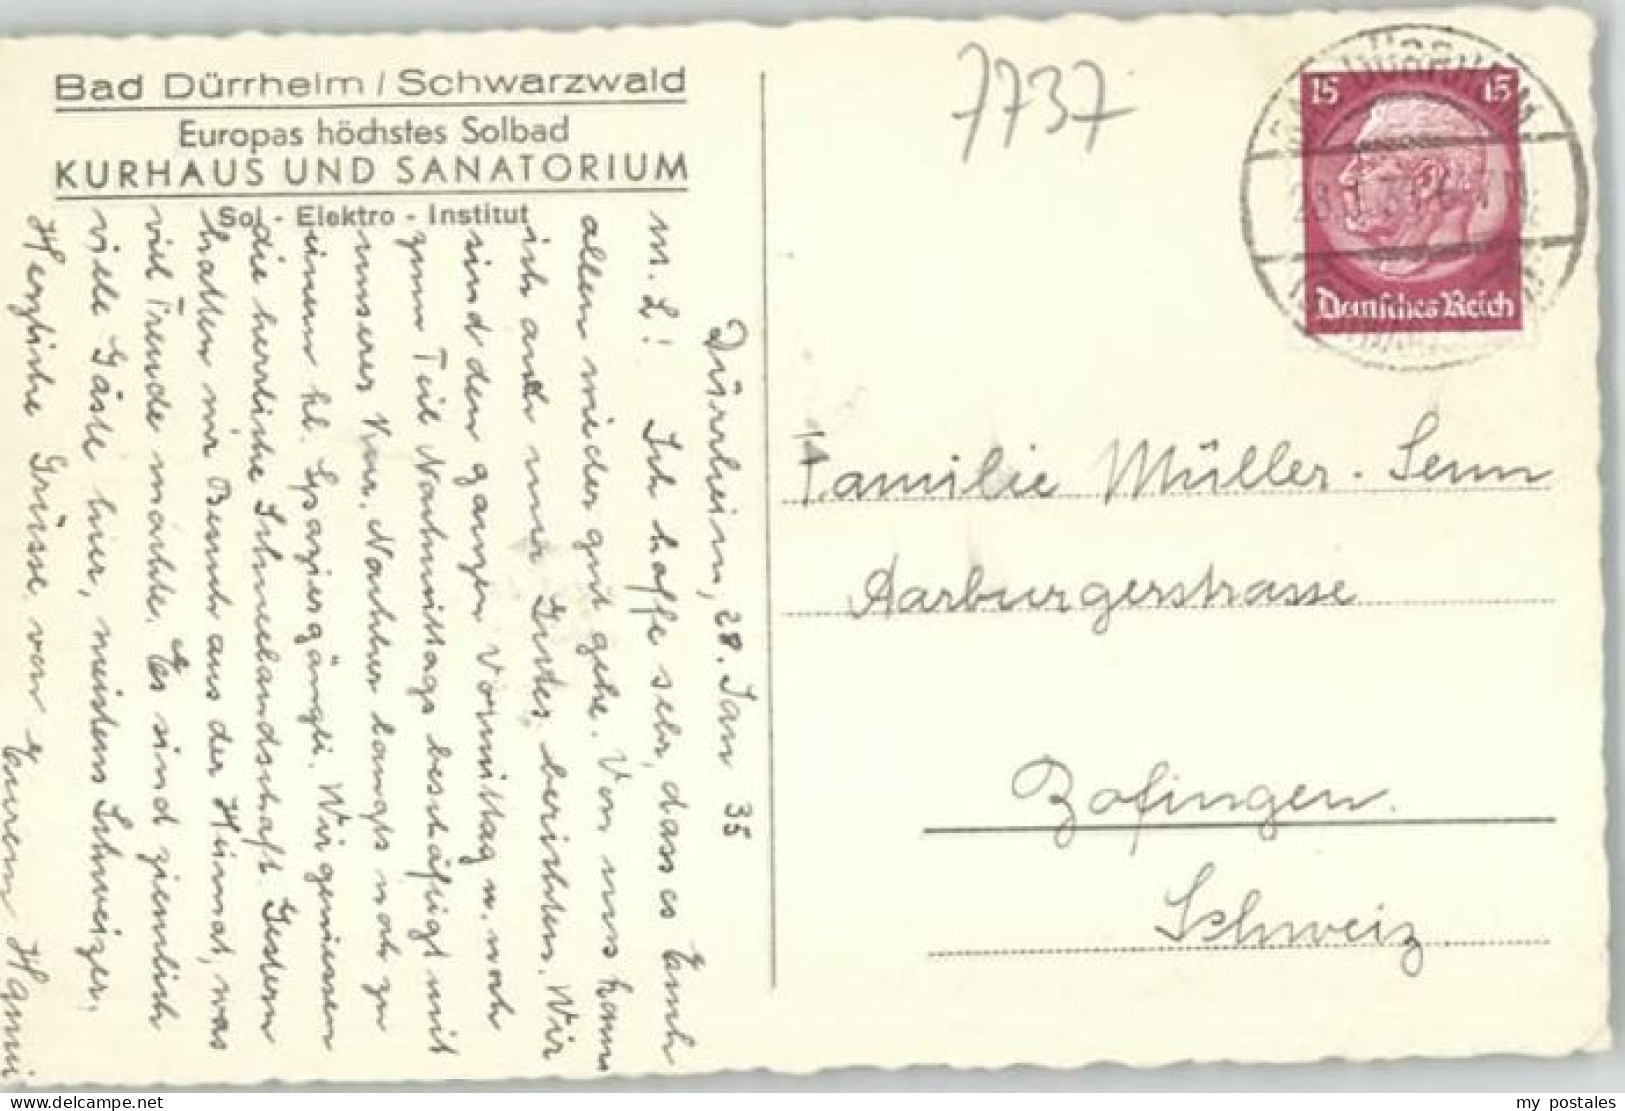 Bad Dürrheim / Schwarzwald
Europas höchstes Solbad
KURHAUS UND SANATORIUM
Sol - Elektro - Institut
Dürrheim, 28. Jan 35
M. L! Ich hoffe sehr, dass es Euch
allen wieder gut gehe. Von uns kann
ich auch nur Gutes berichten. Wir
sind den ganzen Vormittag u. noch
zum Teil Nachmittags beschäftigt mit
unserer Kur. Nachher langts noch zu
einem kl. Spaziergängli. Wir geniessen
die herrliche Schneelandschaft. Gestern
hatten wir Besuch aus der Heimat, was
viel Freude machte. Es sind ziemlich
viele Gäste hier, meistens Schweizer.
Herzliche Grüsse von Eurem Hanni
7737
15 15
Deutsches Reich
Familie Müller-Senn
Aarburgerstrasse
Zofingen.
Schweiz
my postales